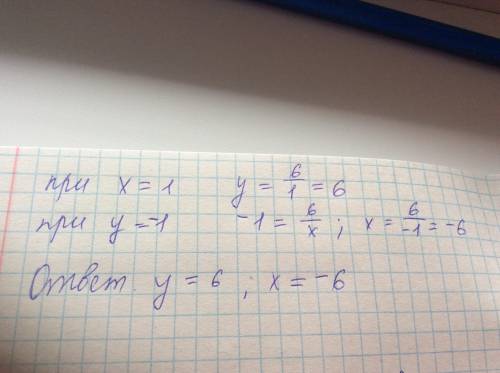 при x = 1 y = 6/1 = 6
при y = -1 -1 = 6/x ; x = 6/-1 = -6
Ответ. y = 6 ; x = -6